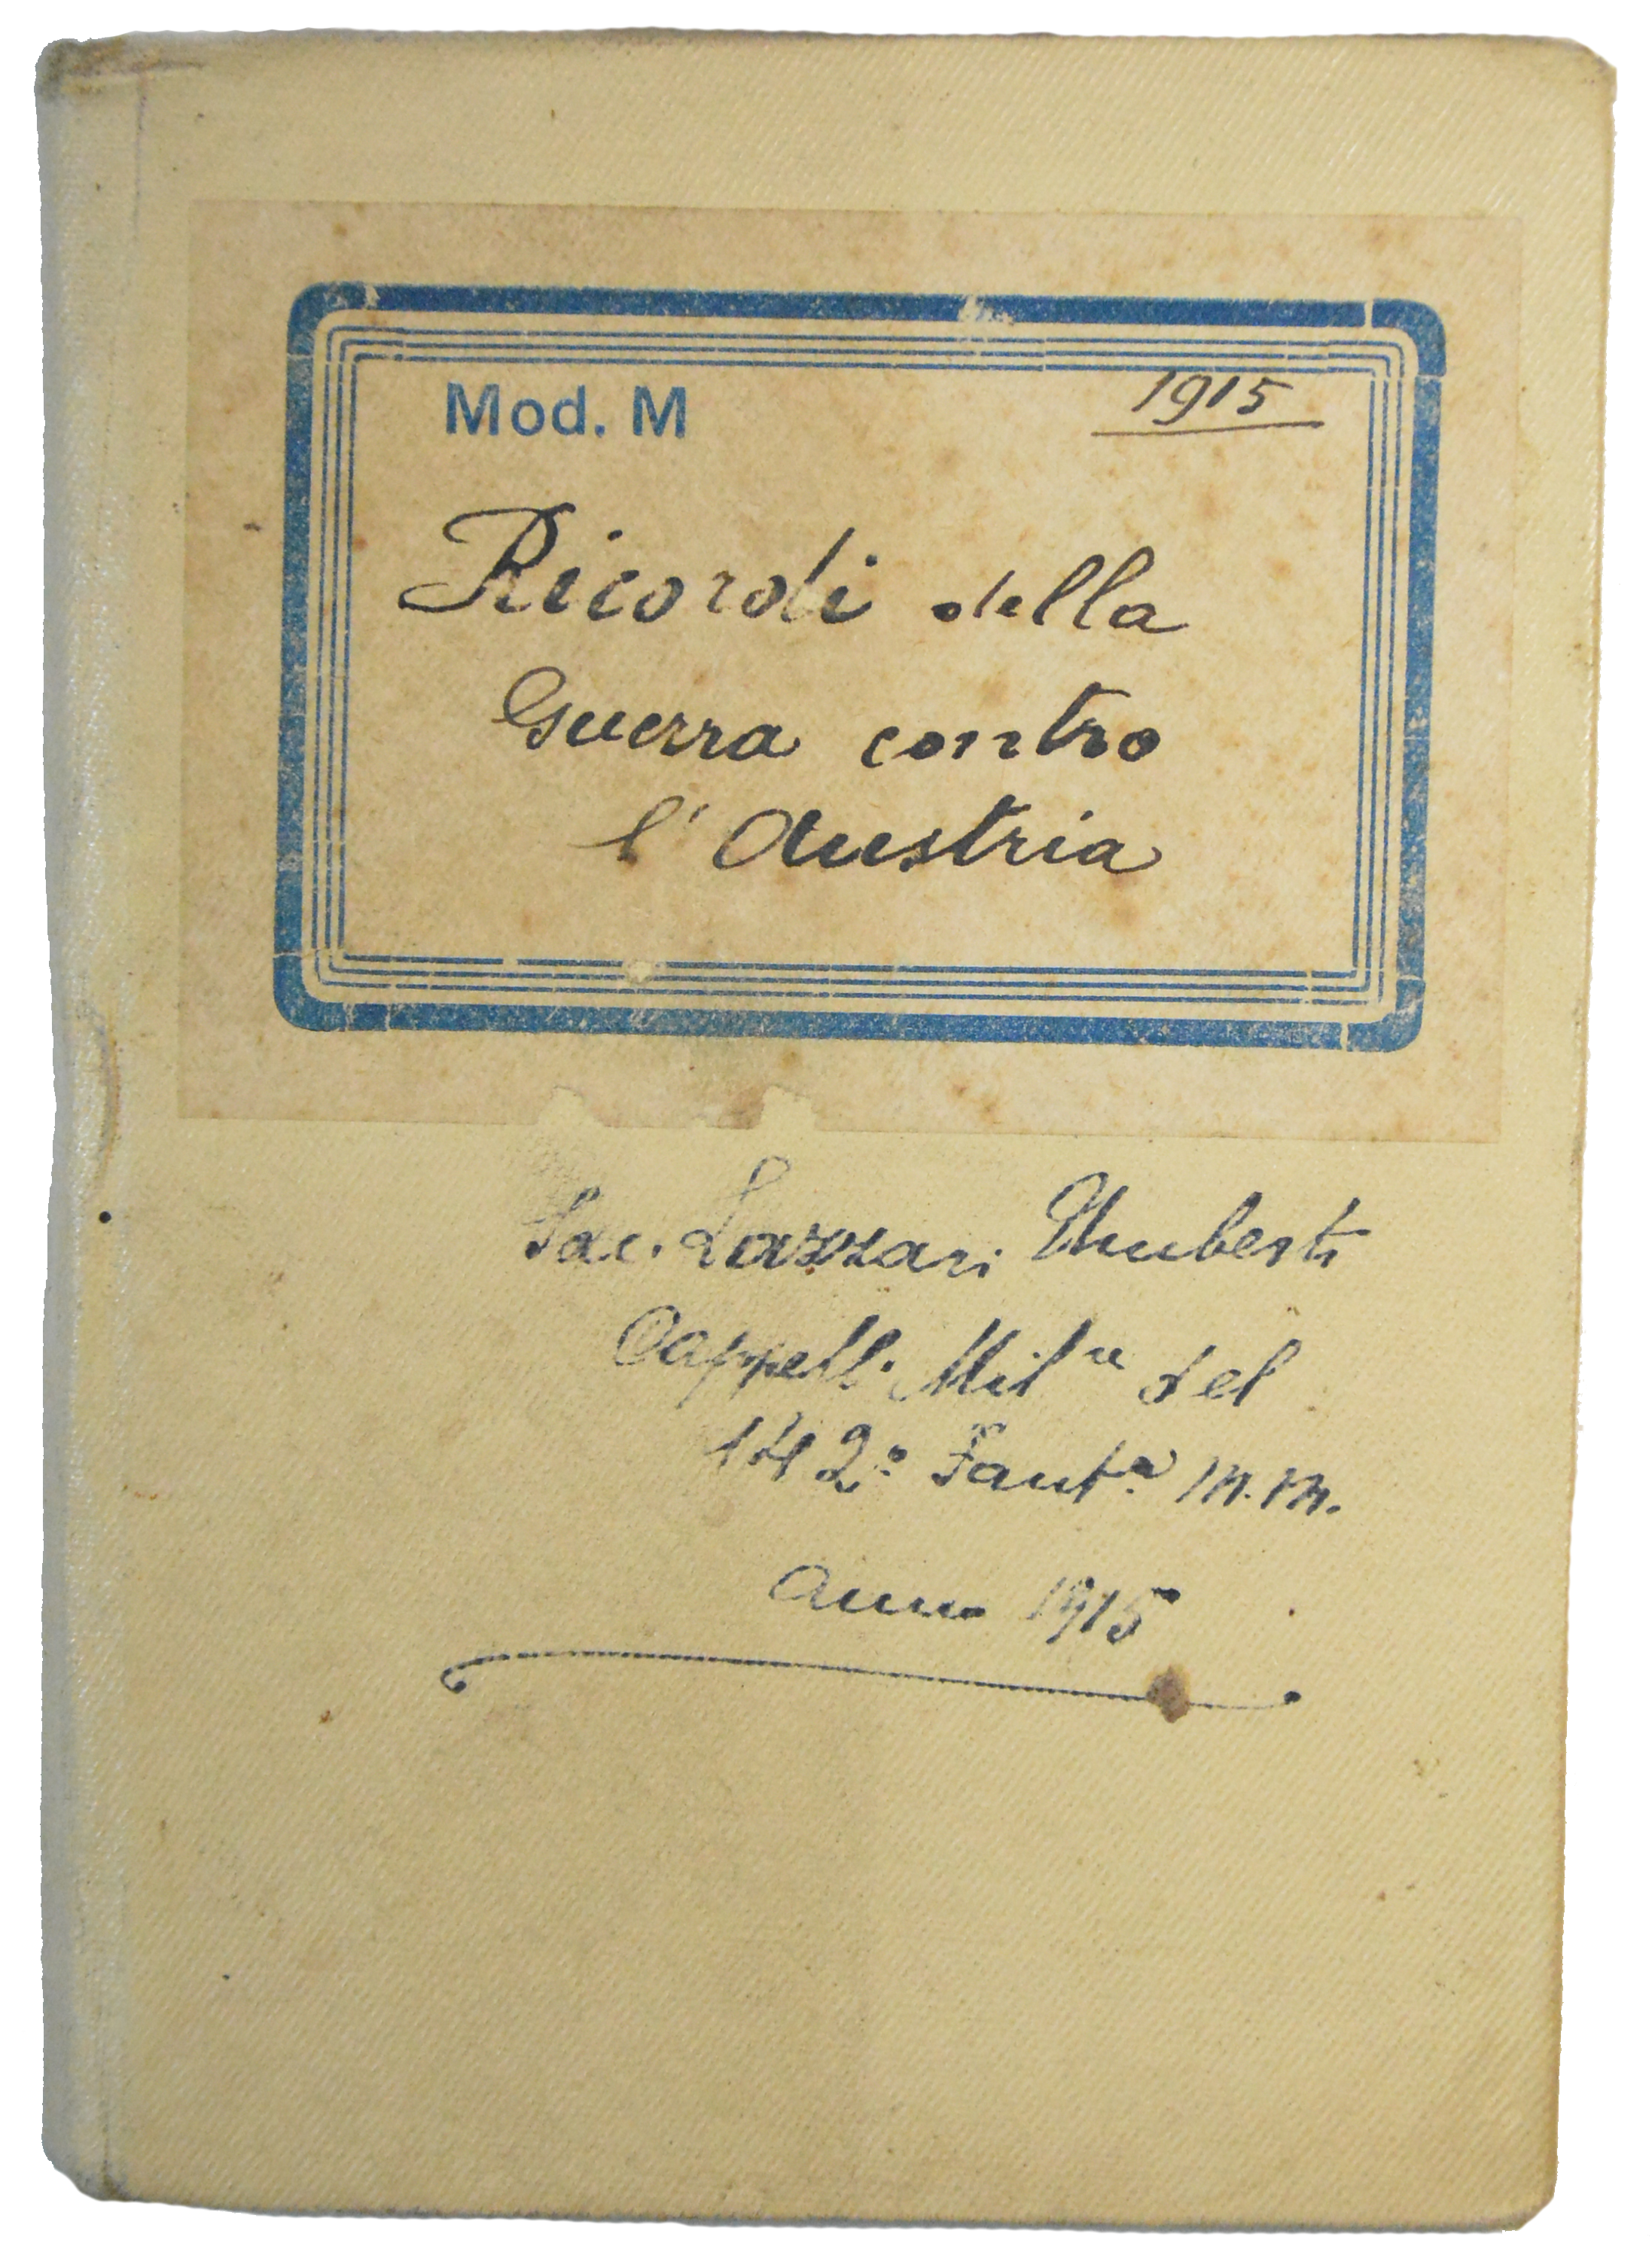 Mod. M 1915
Ricordi della
Guerra contro
l'Austria
Sac. Lazzari Umberto
Cappell. Milre del
142º Fantª M.M.
Anno 1915